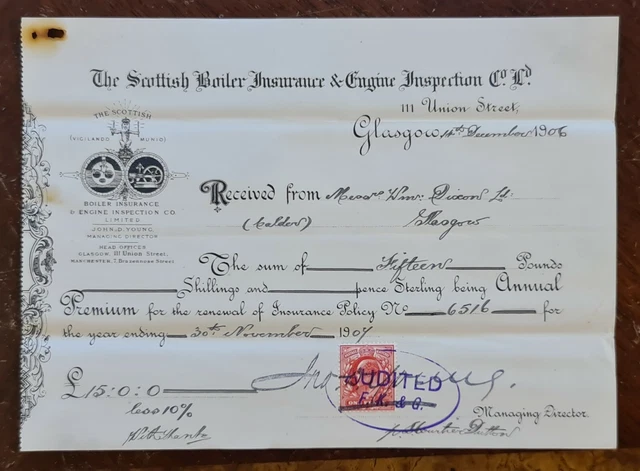 The Scottish Boiler Insurance & Engine Inspection Co. Ld.
111 Union Street,
Glasgow 14th December 1906
THE SCOTTISH
VIGILANDO MUNIO
BOILER INSURANCE
& ENGINE INSPECTION CO.
LIMITED
JOHN. D. YOUNG.
MANAGING DIRECTOR
HEAD OFFICES
GLASGOW, 111 UNION STREET,
MANCHESTER,
Received from Messrs Wm. Dixon Ld.
(Calder) Glasgow
The sum of Fifteen Pounds
Shillings and pence Sterling being Annual
Premium for the renewal of Insurance Policy No 6516 for
the year ending 30th November 1907
£15:0:0
AUDITED
less 10%
Managing Director.
With thanks